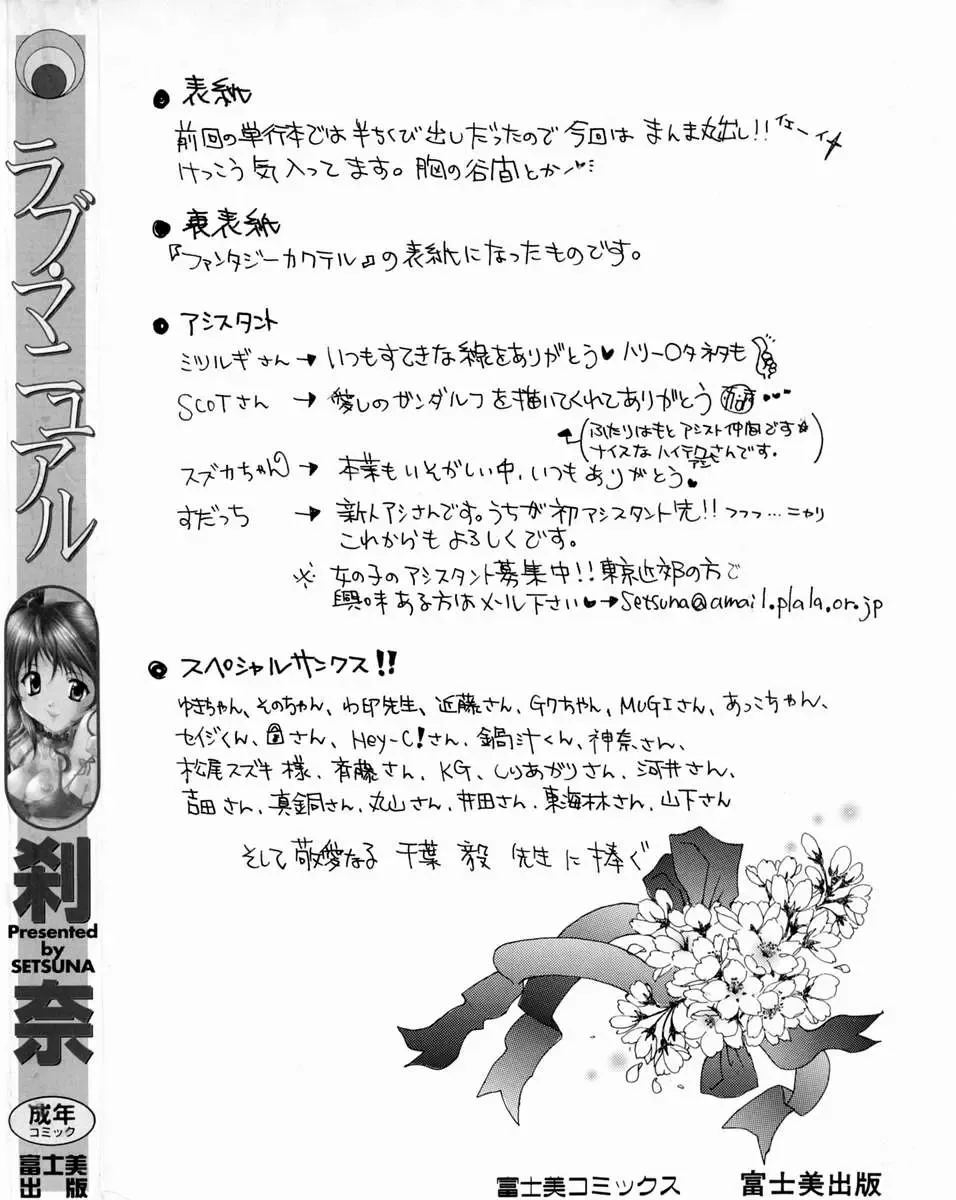 ラブ・マニュアル
刹奈
Presented
by
SETSUNA
成年
コミック
富士美
出版
● 表紙
前回の単行本では半ちくび出しだったので今回は まんま丸出し!! イエーイ
けっこう気入ってます。胸の谷間とか
● 裏表紙
『ファンタジーカクテル』の表紙になったものです。
● アシスタント
ミツルギさん → いつもすてきな線をありがとう♥ ハリー〇タネタも
SCOTさん → 愛しのガンダルフを描いてくれてありがとう
(ふたりはもとアシスト仲間です☆
ナイスなハイテクアシさんです。)
スズカちゃん → 本業もいそがしい中、いつもありがとう♥
すだっち → 新人アシさんです。うちが初アシスタント先!! フフフ…ニヤリ
これからもよろしくです。
※ 女の子のアシスタント募集中!! 東京近郊の方で
興味ある方はメール下さい♥→Setsuna@amail.plala.or.jp
● スペシャルサンクス!!
ゆきちゃん、そのちゃん、わ印先生、近藤さん、Gクちゃん、MUGIさん、あっこちゃん、
セイジくん、さん、Hey-C!さん、鍋汁くん、神奈さん、
松尾スズキ様、斉藤さん、KG、しりあがりさん、河井さん、
吉田さん、真鍋さん、丸山さん、井田さん、東海林さん、山下さん
そして敬愛なる 千葉 毅 先生に捧ぐ
富士美コミックス
富士美出版